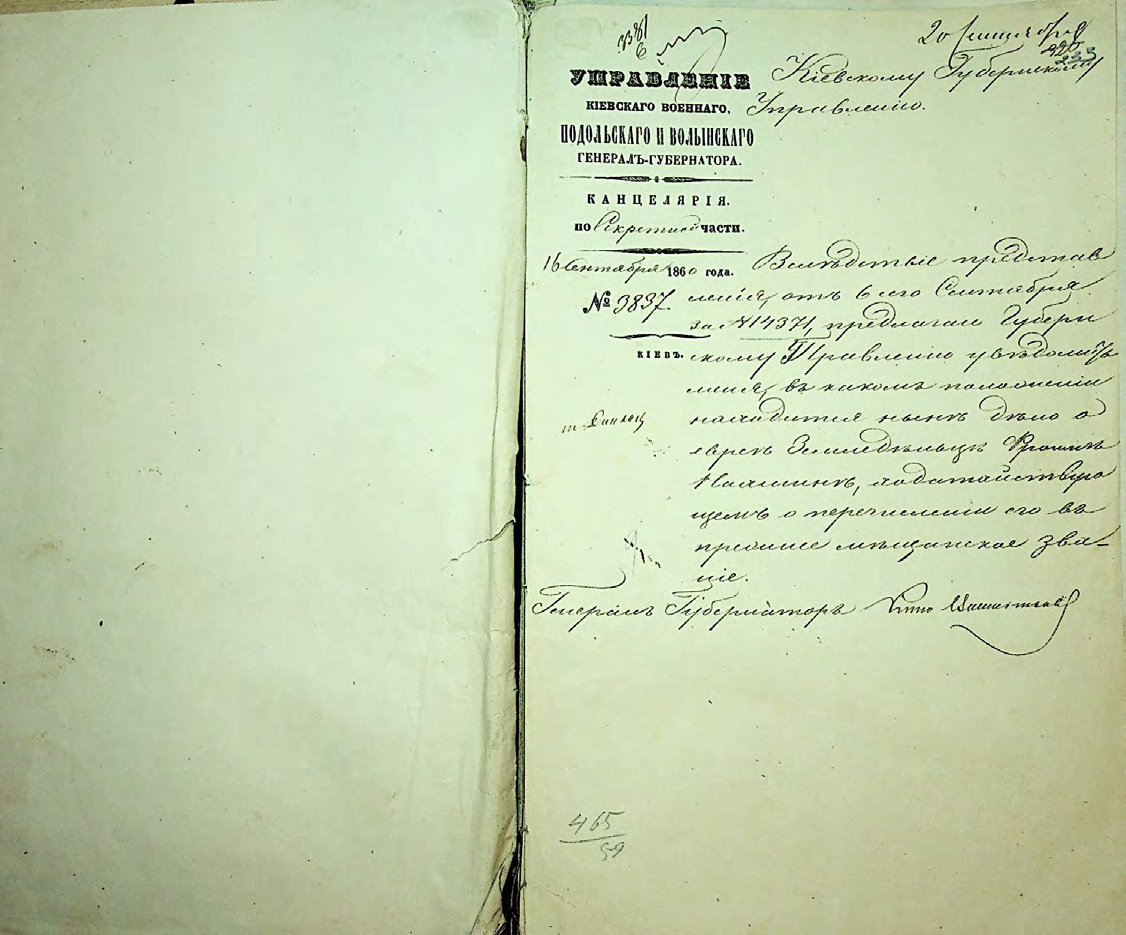 20 Сентября
3381
6
235
УПРАВЛЕНІЕ
КІЕВСКАГО ВОЕННАГО,
ПОДОЛЬСКАГО И ВОЛЫНСКАГО
ГЕНЕРАЛЪ-ГУБЕРНАТОРА.
КАНЦЕЛЯРІЯ.
ПО Секретной ЧАСТИ.
16 Сентября 1860 года.
№ 3837
КІЕВЪ.
Кіевскому Губернскому
Управленію.
Вслѣдствіе представ
ленія, отъ 6 сего Сентября
за № 14371, предлагаю Губерн
скому Правленію увѣдомить
меня, въ какомъ положеніи
находится нынѣ дѣло о
евреѣ Земледѣльцѣ
ходатайствую
щемъ о перечисленіи его въ
прежнее мѣщанское зва-
ніе.
Генералъ Губернаторъ
465
59